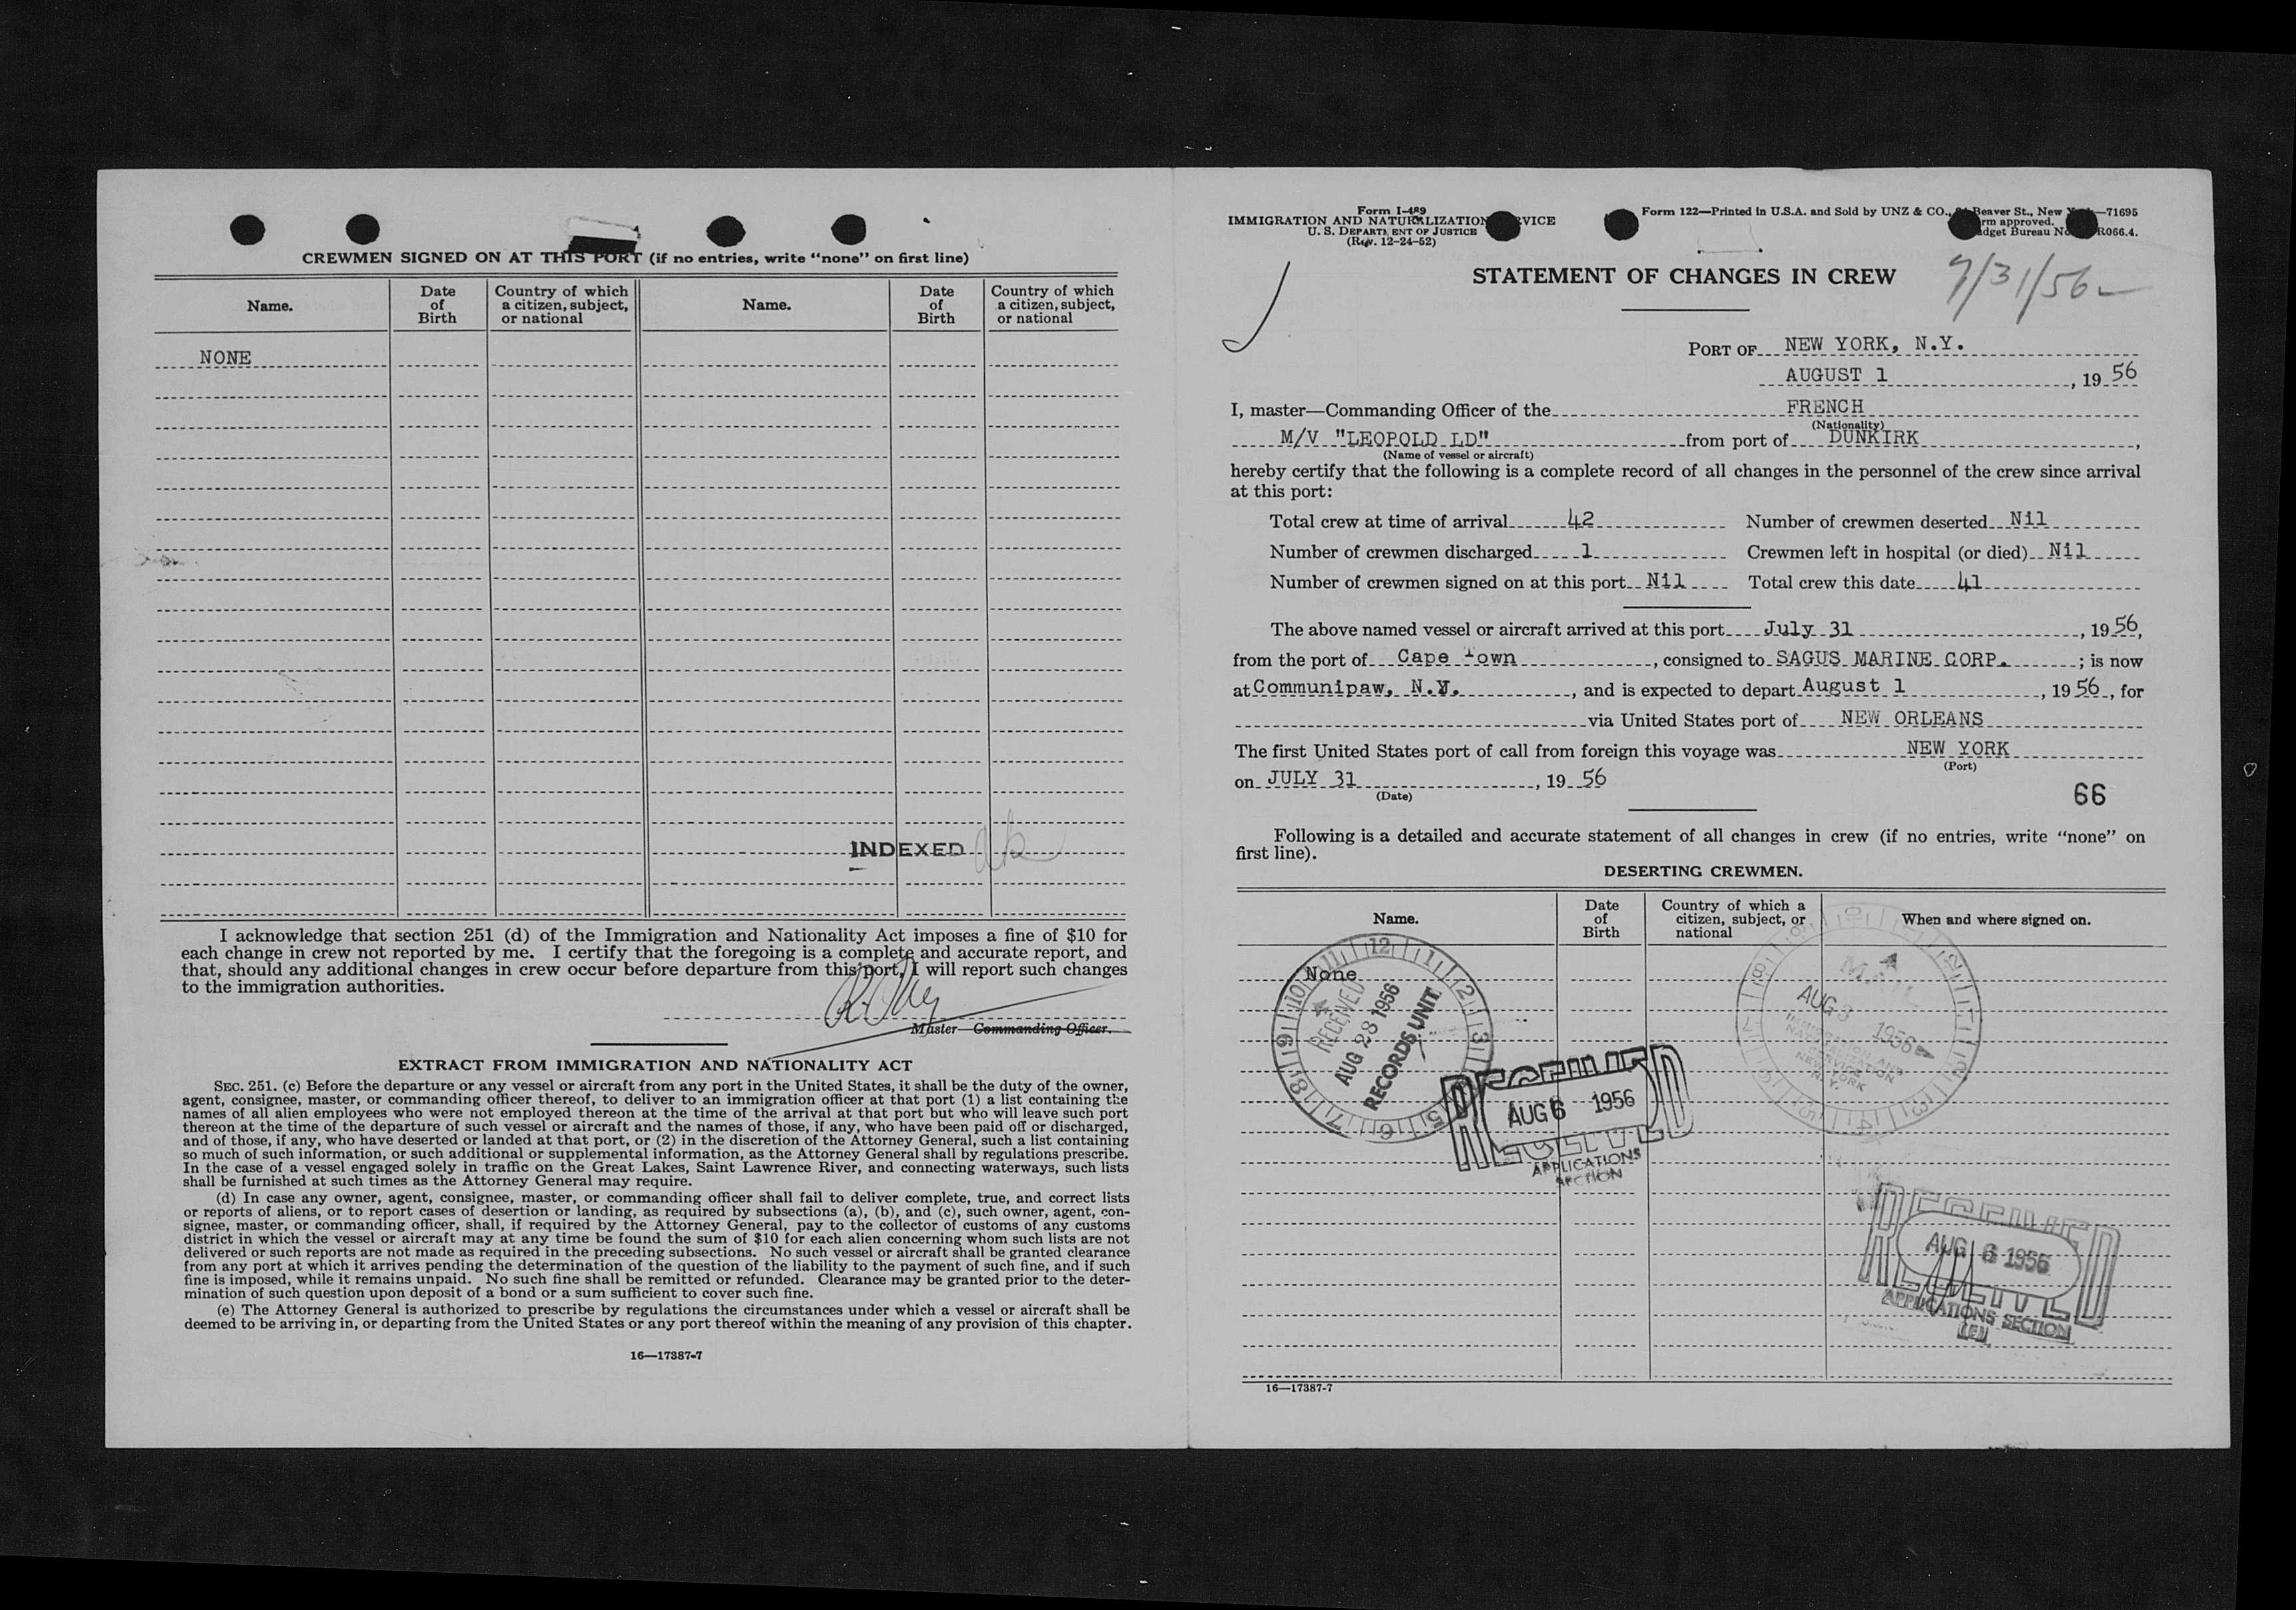 CREWMEN SIGNED ON AT THIS PORT (if no entries, write "none" on first line)
Name.
Date of Birth
Country of which a citizen, subject, or national
Name.
Date of Birth
Country of which a citizen, subject, or national
NONE
INDEXED
I acknowledge that section 251 (d) of the Immigration and Nationality Act imposes a fine of $10 for
each change in crew not reported by me. I certify that the foregoing is a complete and accurate report, and
that, should any additional changes in crew occur before departure from this port, I will report such changes
to the immigration authorities.
Master—Commanding Officer.
EXTRACT FROM IMMIGRATION AND NATIONALITY ACT
SEC. 251. (c) Before the departure or any vessel or aircraft from any port in the United States, it shall be the duty of the owner,
agent, consignee, master, or commanding officer thereof, to deliver to an immigration officer at that port (1) a list containing the
names of all alien employees who were not employed thereon at the time of the arrival at that port but who will leave such port
thereon at the time of the departure of such vessel or aircraft and the names of those, if any, who have been paid off or discharged,
and of those, if any, who have deserted or landed at that port, or (2) in the discretion of the Attorney General, such a list containing
so much of such information, or such additional or supplemental information, as the Attorney General shall by regulations prescribe.
In the case of a vessel engaged solely in traffic on the Great Lakes, Saint Lawrence River, and connecting waterways, such lists
shall be furnished at such times as the Attorney General may require.
(d) In case any owner, agent, consignee, master, or commanding officer shall fail to deliver complete, true, and correct lists
or reports of aliens, or to report cases of desertion or landing, as required by subsections (a), (b), and (c), such owner, agent, con-
signee, master, or commanding officer, shall, if required by the Attorney General, pay to the collector of customs of any customs
district in which the vessel or aircraft may at any time be found the sum of $10 for each alien concerning whom such lists are not
delivered or such reports are not made as required in the preceding subsections. No such vessel or aircraft shall be granted clearance
from any port at which it arrives pending the determination of the question of the liability to the payment of such fine, and if such
fine is imposed, while it remains unpaid. No such fine shall be remitted or refunded. Clearance may be granted prior to the deter-
mination of such question upon deposit of a bond or a sum sufficient to cover such fine.
(e) The Attorney General is authorized to prescribe by regulations the circumstances under which a vessel or aircraft shall be
deemed to be arriving in, or departing from the United States or any port thereof within the meaning of any provision of this chapter.
16—17387-7
Form I-489
IMMIGRATION AND NATURALIZATION SERVICE
U. S. DEPARTMENT OF JUSTICE
(Rev. 12-24-52)
Form 122—Printed in U.S.A. and Sold by UNZ & CO., Beaver St., New —71695
approved.
Bureau No. R066.4.
STATEMENT OF CHANGES IN CREW
7/31/56
PORT OF NEW YORK, N.Y.
AUGUST 1, 19 56
I, master—Commanding Officer of the FRENCH
(Nationality)
M/V "LEOPOLD LD" from port of DUNKIRK,
(Name of vessel or aircraft)
hereby certify that the following is a complete record of all changes in the personnel of the crew since arrival
at this port:
Total crew at time of arrival 42 Number of crewmen deserted Nil
Number of crewmen discharged 1 Crewmen left in hospital (or died) Nil
Number of crewmen signed on at this port Nil Total crew this date 41
The above named vessel or aircraft arrived at this port July 31, 19 56,
from the port of Cape Town, consigned to SAGUS MARINE CORP.; is now
at Communipaw, N.Y., and is expected to depart August 1, 19 56, for
via United States port of NEW ORLEANS
The first United States port of call from foreign this voyage was NEW YORK
(Port)
on JULY 31, 19 56
(Date)
66
Following is a detailed and accurate statement of all changes in crew (if no entries, write "none" on
first line).
DESERTING CREWMEN.
Name.
Date of Birth
Country of which a citizen, subject, or national
When and where signed on.
None
RECEIVED
AUG 28 1956
RECORDS UNIT
MAIL
AUG 3 1956
IMMIGRATION AND
NATURALIZATION
SERVICE
NEW YORK
N.Y.
RECEIVED
AUG 6 1956
APPLICATIONS
SECTION
RECEIVED
AUG 6 1956
APPLICATIONS SECTION
16—17387-7